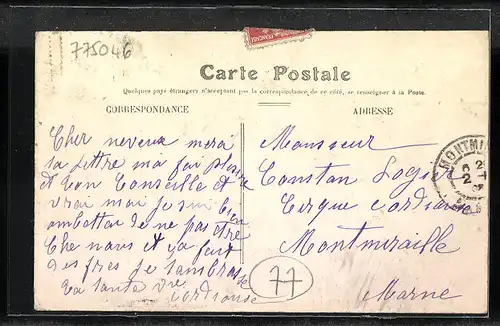 775046
Carte Postale
Quelques pays étrangers n'acceptant pas la correspondance de ce côté, se renseigner à la Poste.
CORRESPONDANCE
ADRESSE
Cher neveux merci
ta lettre ma fai plaisire
et ton Conseille et
vrai mai je sui bien
ambettai de ne pas être
Che nous et ya fait
des fres je tambrasse
Ta tante Vve
Cordianse
Monsieur
Constan Logier
Cirque Cordianse
Montmiraille
Marne
MONTMI
77